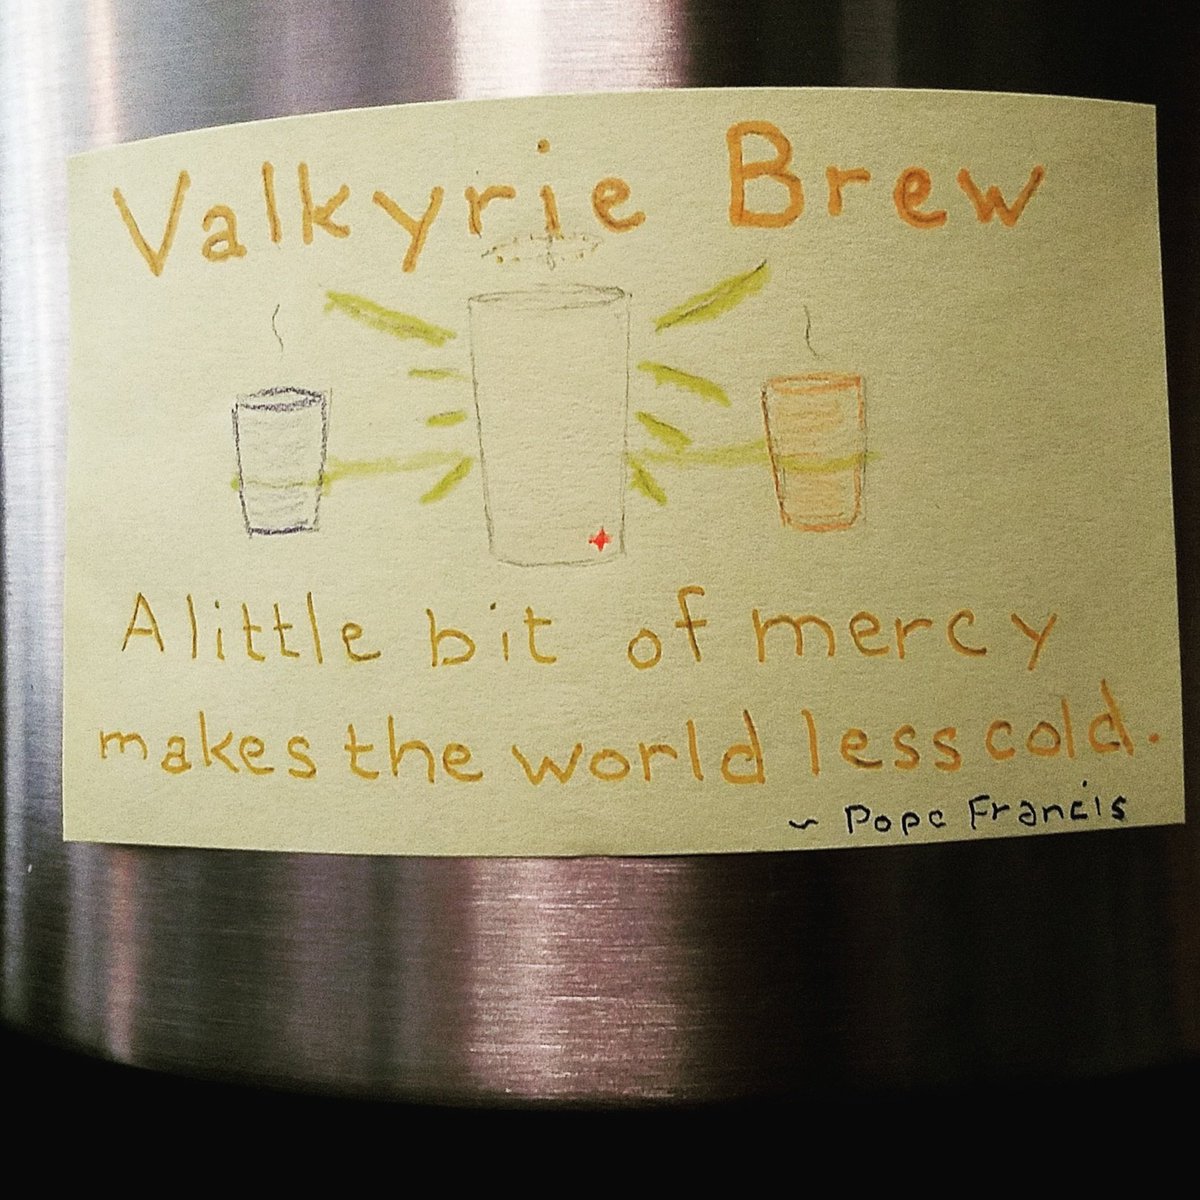 Valkyrie Brew
A little bit of mercy
makes the world less cold.
~ Pope Francis